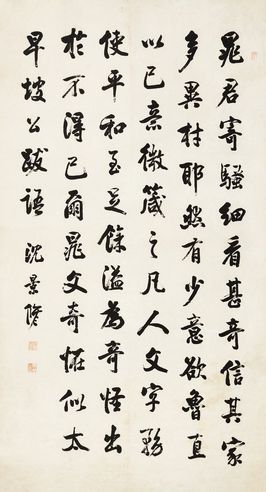 晁君寄騷細看甚奇信其家
多異材耶然有少意欲魯直
以己意微箴之凡人文字務
使平和至足餘溢為奇怪出
於不得已爾晁文奇怪似太
早坡公跋語 沈景脩